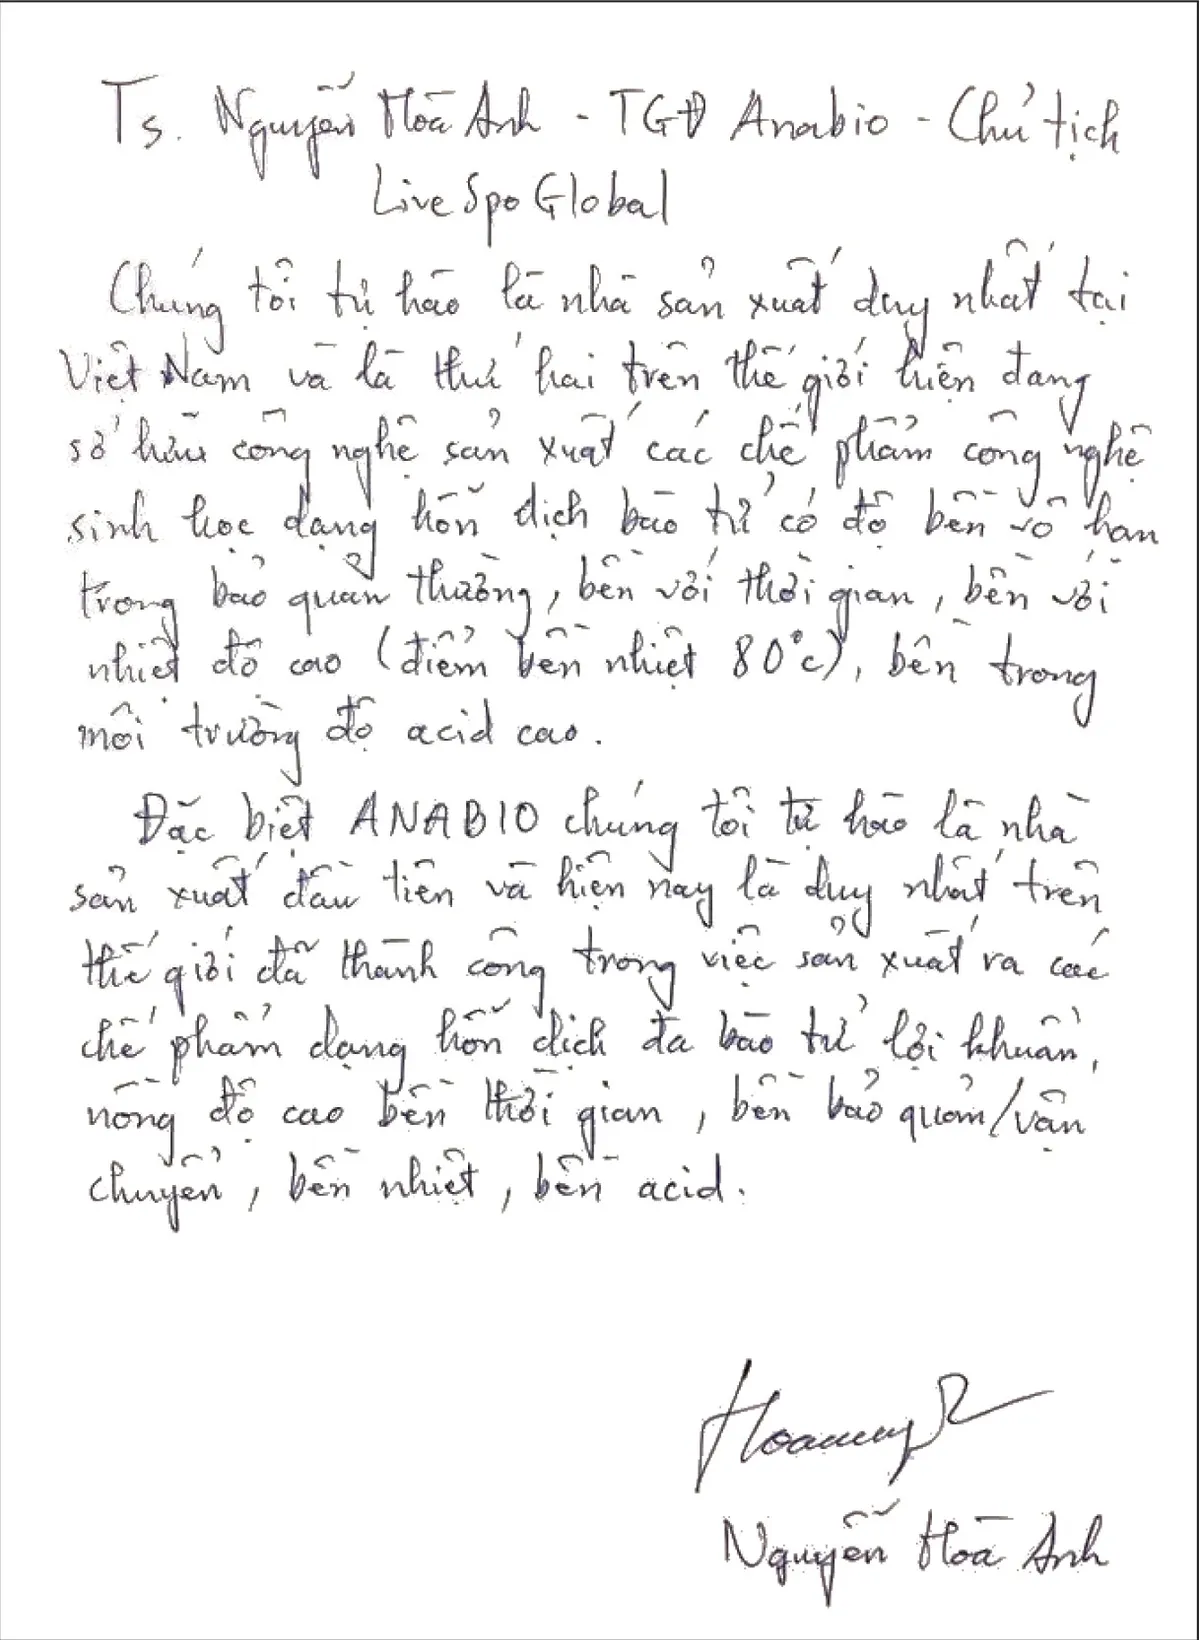 Ts. Nguyễn Hoà Anh - TGĐ Anabio - Chủ tịch
LiveSpo Global
Chúng tôi tự hào là nhà sản xuất duy nhất tại
Việt Nam và là thứ hai trên thế giới hiện đang
sở hữu công nghệ sản xuất các chế phẩm công nghệ
sinh học dạng hỗn dịch bào tử có độ bền vô hạn
trong bảo quản thường, bền với thời gian, bền với
nhiệt độ cao (điểm bền nhiệt 80°c), bền trong
môi trường độ acid cao.
Đặc biệt ANABIO chúng tôi tự hào là nhà
sản xuất đầu tiên và hiện nay là duy nhất trên
thế giới đã thành công trong việc sản xuất ra các
chế phẩm dạng hỗn dịch đa bào tử lợi khuẩn,
nồng độ cao bền thời gian, bền bảo quản/vận
chuyển, bền nhiệt, bền acid.
Nguyễn Hoà Anh